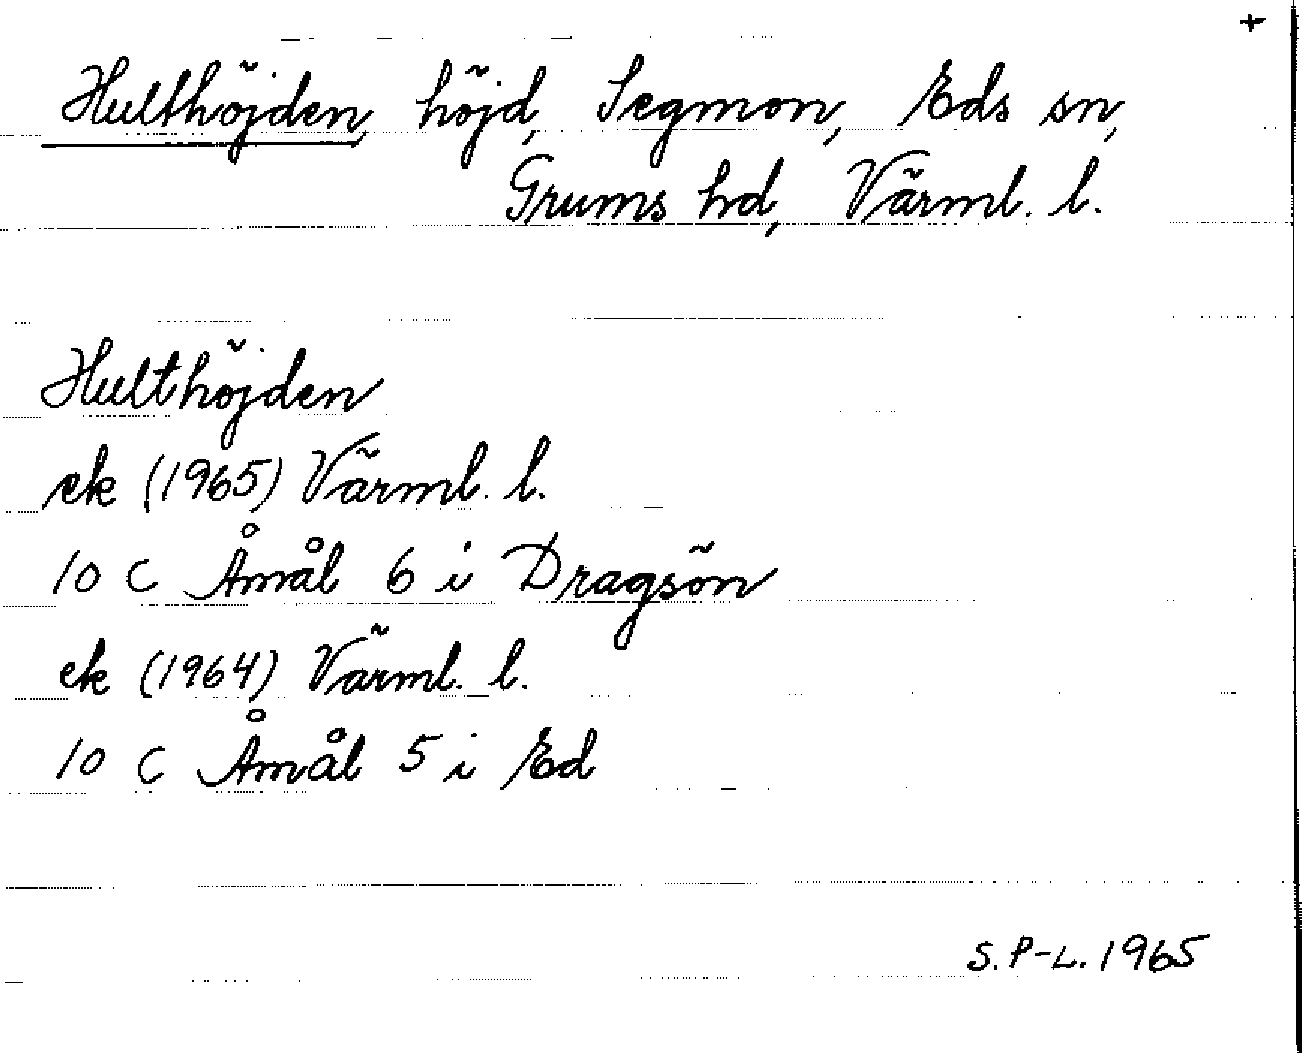 +
Hulthöjden, höjd, Segmon, Eds sn,
Grums hd, Värml. l.
Hulthöjden
ek (1965) Värml. l.
10 C Åmål 6 i Dragsön
ek (1964) Värml. l.
10 C Åmål 5 i Ed
S. P-L. 1965